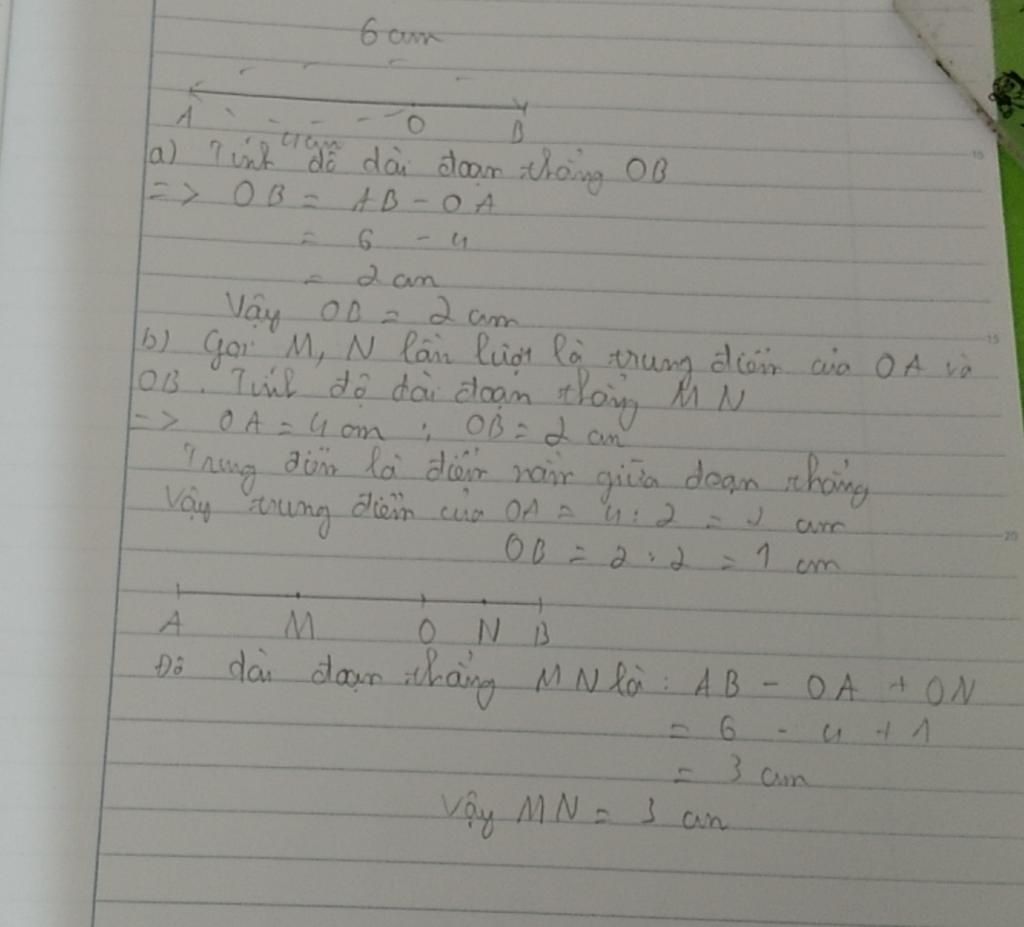 6 cm
A O B
4cm
a) Tính độ dài đoạn thẳng OB
=> OB = AB - OA
= 6 - 4
= 2 cm
Vậy OB = 2 cm
b) Gọi M, N lần lượt là trung điểm của OA và
OB. Tính độ dài đoạn thẳng MN
=> OA = 4 cm ; OB = 2 cm
Trung điểm là điểm nằm giữa đoạn thẳng
Vậy trung điểm của OA = 4 : 2 = 2 cm
OB = 2 : 2 = 1 cm
A M O N B
Độ dài đoạn thẳng MN là : AB - OA + ON
= 6 - 4 + 1
= 3 cm
Vậy MN = 3 cm